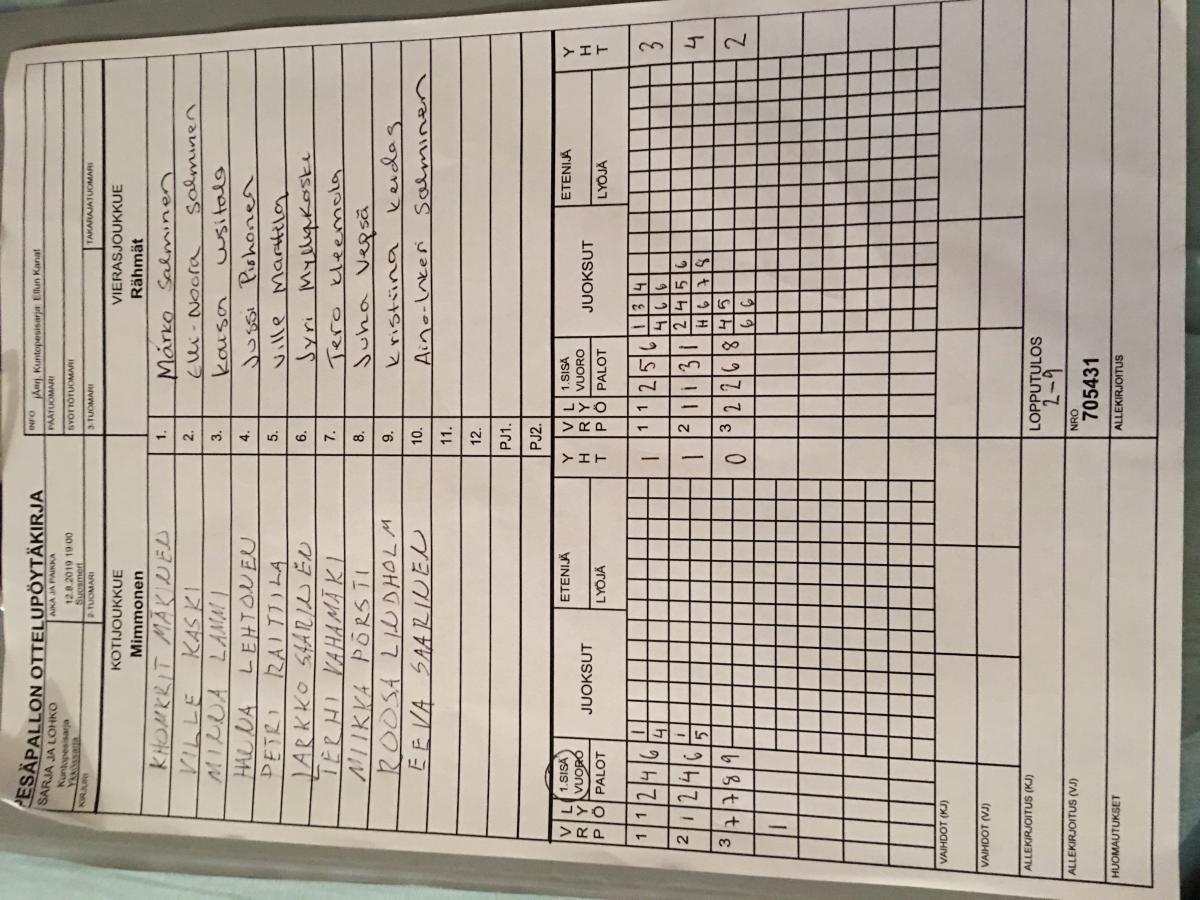 PESÄPALLON OTTELUPÖYTÄKIRJA
SARJA JA LOHKO
Kuntopesisarja
Ykkössarja
AIKA JA PAIKKA
12.8.2019 19:00
Suosmeri
INFO jÄrj. Kuntopesisarja: Ellun Kanat
PÄÄTUOMARI
SYÖTTÖTUOMARI
KIRJURI
2-TUOMARI
3-TUOMARI
TAKARAJATUOMARI
KOTIJOUKKUE
Mimmonen
VIERASJOUKKUE
Rähmät
KHOMKRIT MÄKINEN 1. Marko Salminen
VILLE KASKI 2. Elli-Noora Salminen
MINNA LAMMI 3. Kaisa Usitalo
HANNA LEHTONEN 4. Jussi Pishonen
PETRI RAITTILA 5. Ville Marttila
JARKKO SAARINEN 6. Jyri Myllykoski
TERHI VAHAMÄKI 7. Tero Kleemola
MIIKKA PÖRSTI 8. Juha Vepsä
ROOSA LINDHOLM 9. Kristiina Keidas
EEVA SAARINEN 10. Aino-Inkeri Salminen
11.
12.
PJ1.
PJ2.
VRP LYÖ 1.SISÄ VUORO PALOT JUOKSUT ETENIJÄ LYÖJÄ YHT VRP LYÖ 1.SISÄ VUORO PALOT JUOKSUT ETENIJÄ LYÖJÄ YHT
1 1 2 4 6 1 1 1 1 2 5 6 1 3 4 3
4 4 6 6
2 1 2 4 6 1 1 2 1 1 3 1 2 4 5 6 4
5 4 6 7 8
3 7 7 8 9 0 3 2 2 6 8 4 5 2
6 6
1
VAIHDOT (KJ)
VAIHDOT (VJ)
ALLEKIRJOITUS (KJ)
LOPPUTULOS
2-9
ALLEKIRJOITUS (VJ)
NRO
705431
HUOMAUTUKSET
ALLEKIRJOITUS